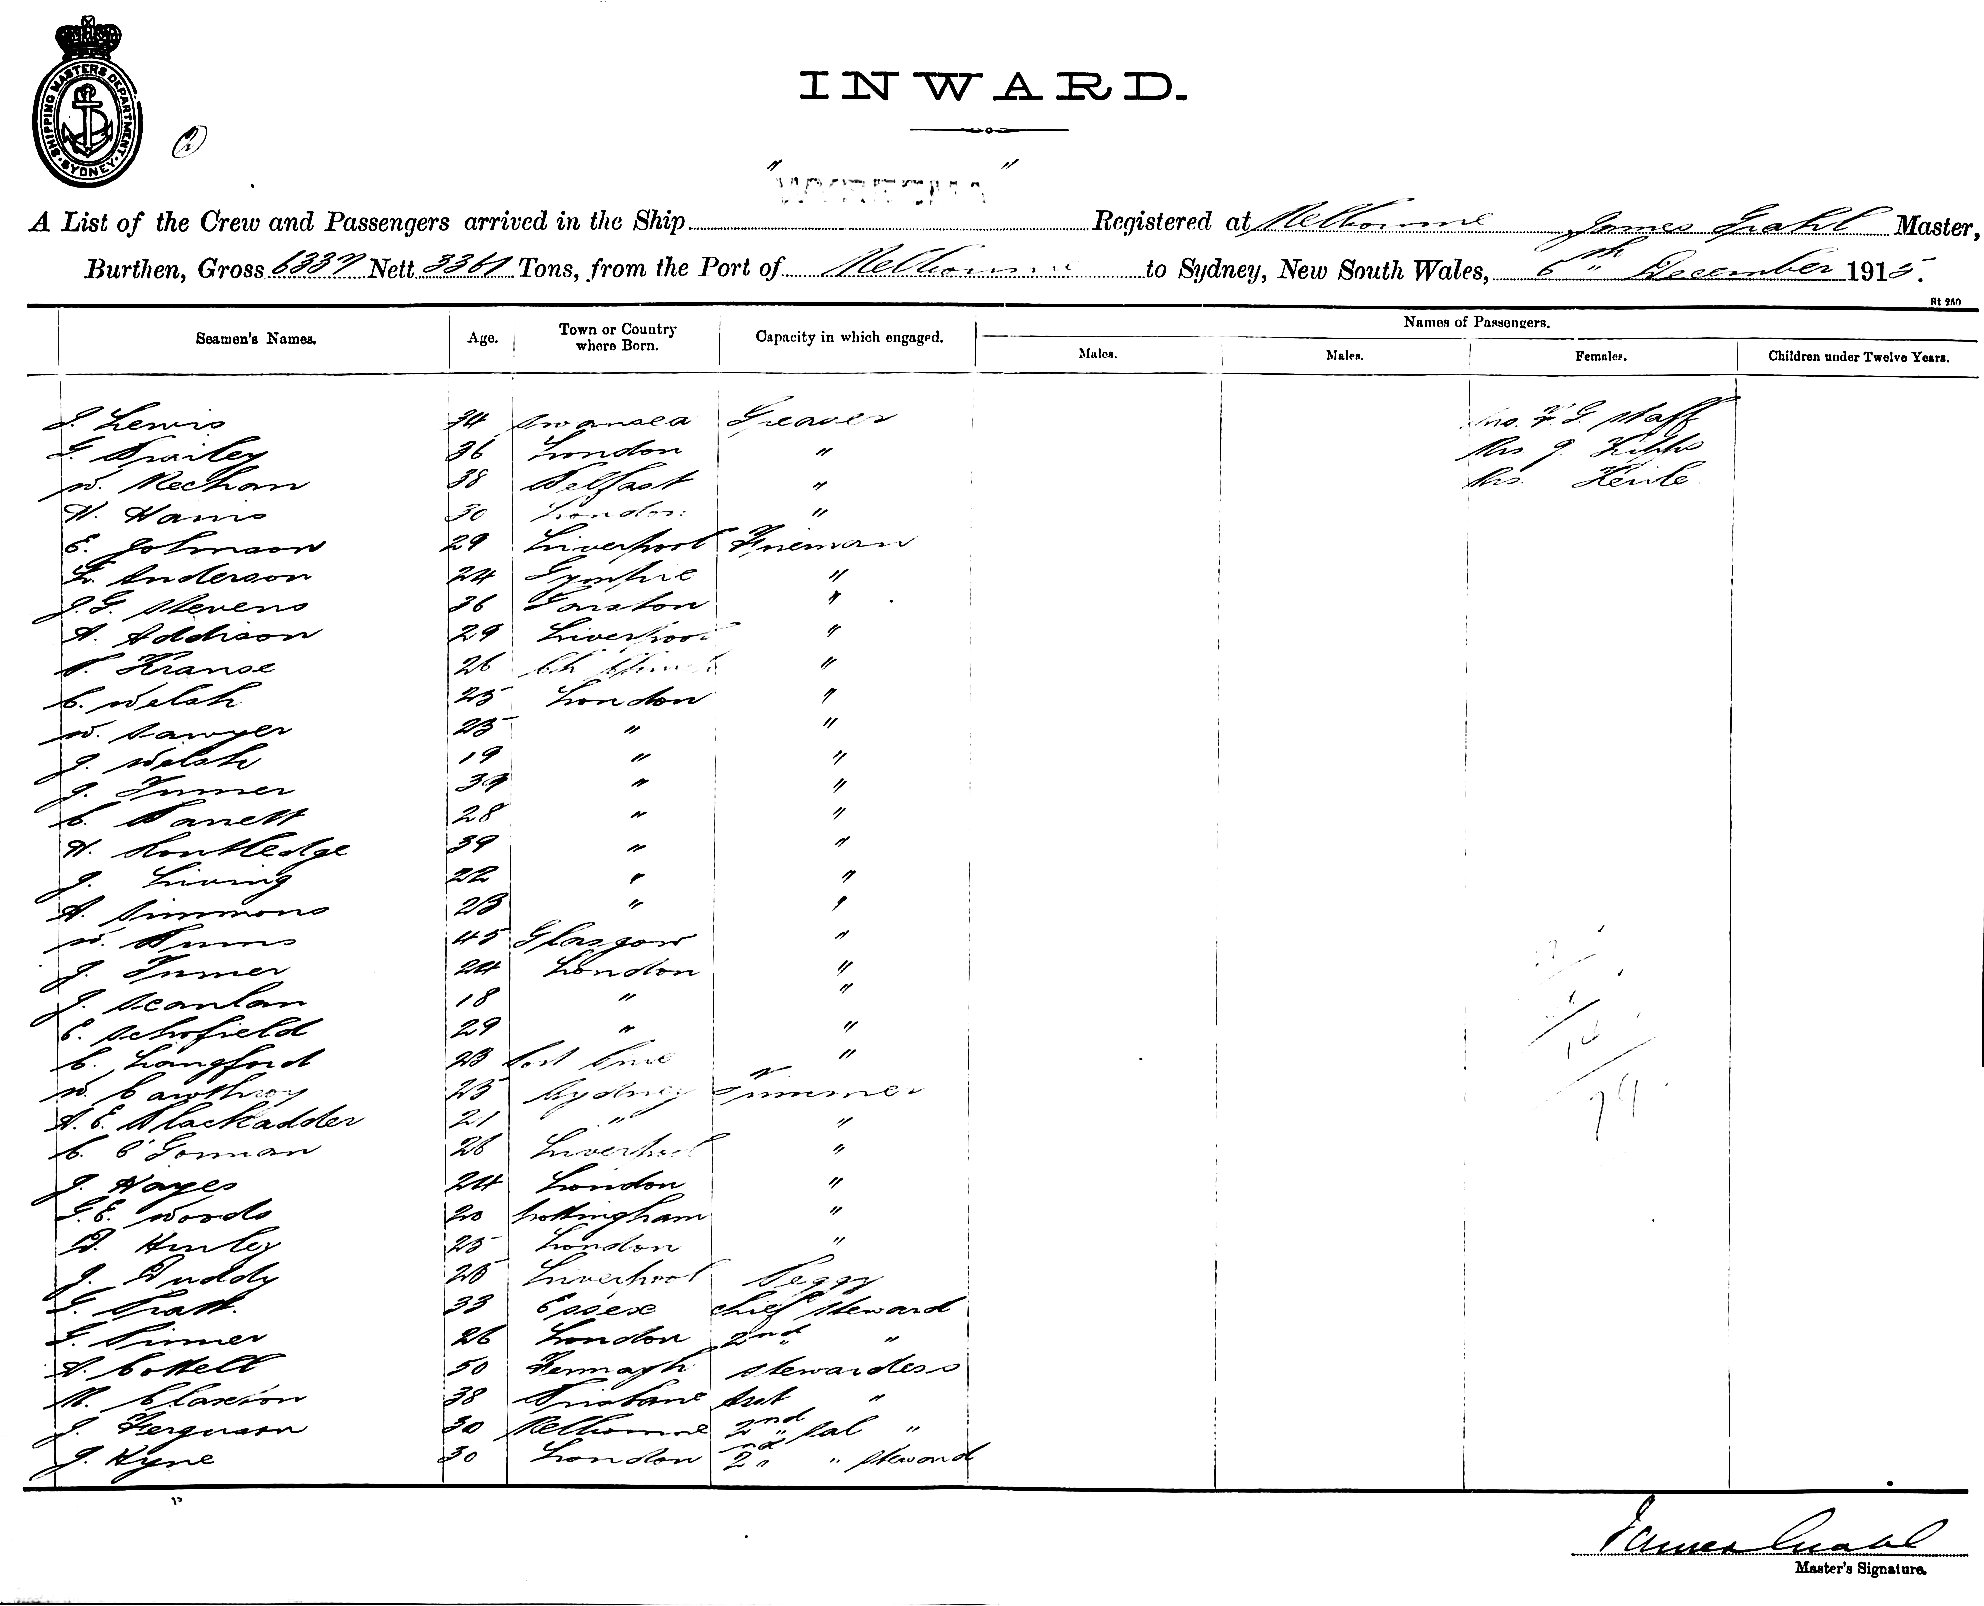 SHIPPING MASTERS DEPARTMENT
SYDNEY
2
INWARD.
" "
A List of the Crew and Passengers arrived in the Ship Registered at Melbourne James Grahl Master,
Burthen, Gross 6337 Nett 3361 Tons, from the Port of Melbourne to Sydney, New South Wales, 6th December 1915.
Seamen's Names. Age. Town or Country where Born. Capacity in which engaged. Names of Passengers.
Males. Males. Females. Children under Twelve Years.
J. Lewis 34 Swansea Greaser F. G. Staff
G. 36 London " Mrs J.
W. Meehan 38 Belfast " Mrs.
H. Harris 30 London "
E. Johnson 29 Liverpool Fireman
L. Anderson 24 Gympie "
J. G. Stevens 36 Garston "
A. Addison 29 Liverpool "
Krause 26 "
C. Welsh 25 London "
W. Sawyer 25 " "
J. Welsh 19 " "
J. Turner 39 " "
C. Barrett 28 " "
H. Routledge 39 " "
J. Living 22 " "
A. Simmons 23 " "
W. Burns 45 Glasgow "
J. Turner 24 London "
J. Scanlan 18 " "
E. Schofield 29 " "
C. Langford 23 "
W. Cawthray 25 Sydney Trimmer
A. E. Blackadder 21 " "
C. O'Gorman 26 Liverpool "
J. Hayes 24 London "
G. E. Woods 20 Nottingham "
D. Hurley 25 London "
J. Duddy 25 Liverpool Peggy
G. Pratt. 33 Essex Chief Steward
G. 26 London 2nd "
A. Cottell 50 Stewardess
M. Claxton 38 Brisbane Asst "
J. Ferguson 30 Melbourne 2nd Sal "
J. Kyne 30 London 2nd " Steward
James Grahl
Master's Signature.